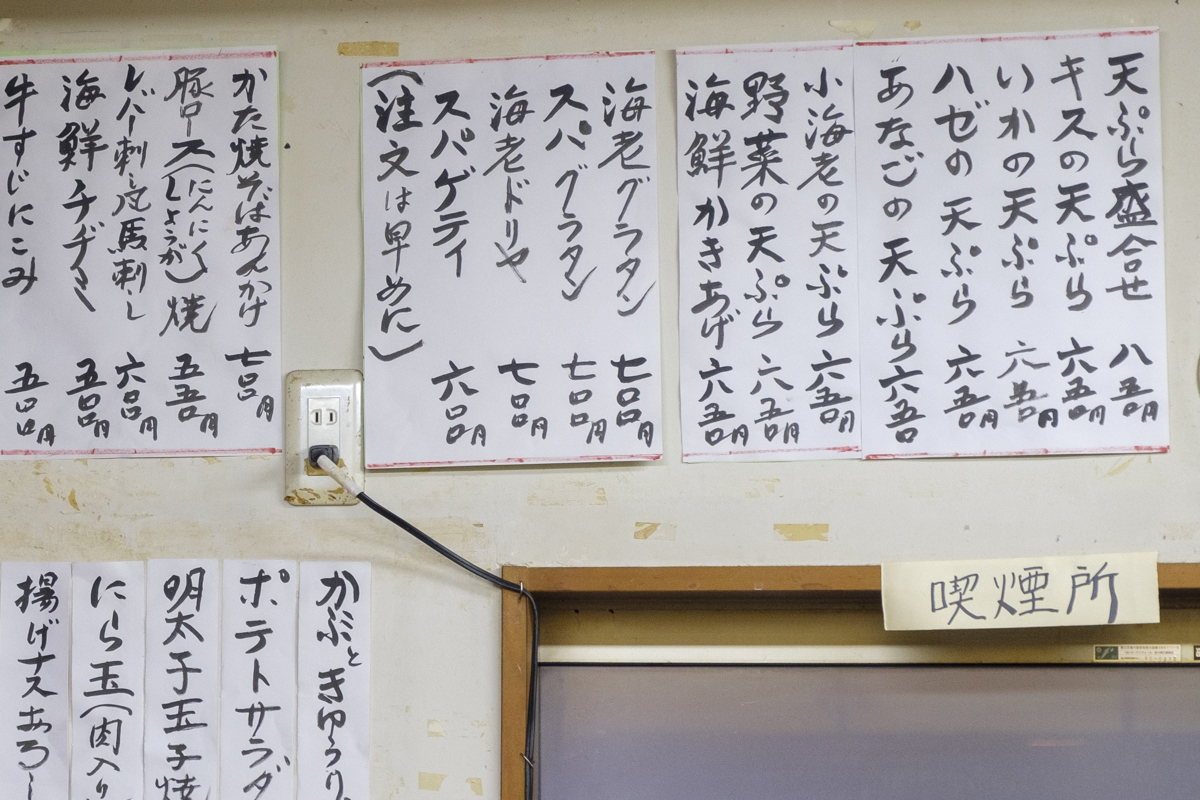 天ぷら盛合せ 八五〇円
キスの天ぷら 六五〇円
いかの天ぷら 六五〇円
ハゼの天ぷら 六五〇円
あなごの天ぷら 六五〇
小海老の天ぷら 六五〇円
野菜の天ぷら 六五〇円
海鮮かきあげ 六五〇円
海老グラタン 七〇〇円
スパグラタン 七〇〇円
海老ドリヤ 七〇〇円
スパゲティ 六〇〇円
(注文は早めに)
かた焼そばあんかけ 七〇〇円
豚ロース(にんにく しょうが)焼 五五〇円
レバー刺し 馬刺し 六〇〇円
海鮮チヂミ 五〇〇円
牛すじにこみ 五〇〇円
かぶときゅうり
ポテトサラダ
明太子玉子焼
にら玉(肉入り
揚げナスおろし
喫煙所